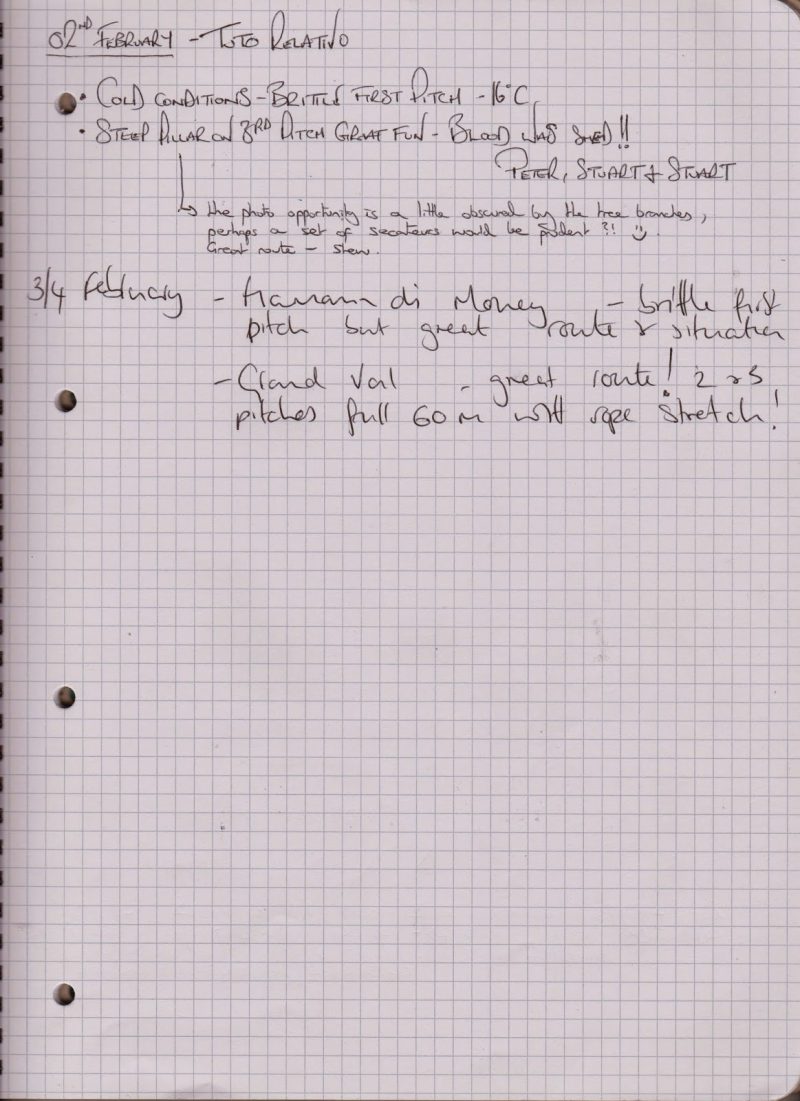 02ND FEBRUARY - TUTO RELATIVO
• COLD CONDITIONS - BRITTLE FIRST PITCH -16°C,
• STEEP PILLAR ON 3RD PITCH GREAT FUN - BLOOD WAS SHED!!
PETER, STUART & STUART
↳ the photo opportunity is a little obscured by the tree branches,
perhaps a set of secateurs would be prudent ?! ☺.
Great route - Stew.
3/4 February - di Money - brittle first
pitch but great route & situation
- Grand Val - great route! 2 & 3
pitches full 60m with rope stretch!